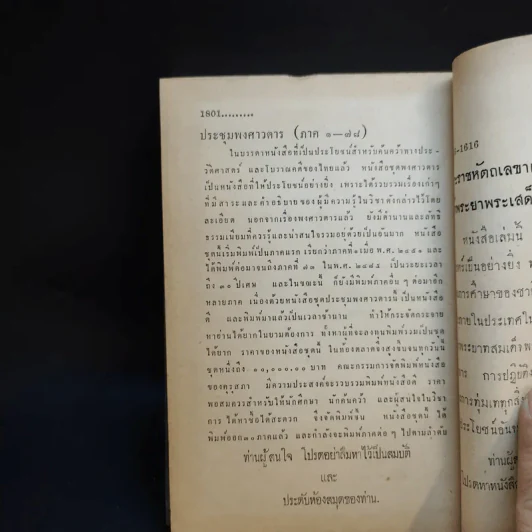 1801.........
ประชุมพงศาวดาร (ภาค ๑—๗๘)
ในบรรดาหนังสือที่เป็นประโยชน์สำหรับค้นคว้าทางประ-
วัติศาสตร์ และโบราณคดีของไทยแล้ว หนังสือชุดพงศาวดาร
เป็นหนังสือที่ให้ประโยชน์อย่างยิ่ง เพราะได้รวบรวมเรื่องเก่าๆ
ที่มีสาระ และคำอธิบายของผู้มีความรู้ในวิชาดังกล่าวไว้โดย
ละเอียด นอกจากเรื่องพงศาวดารแล้ว ยังมีตำนานและลัทธิ
ธรรมเนียมที่ควรรู้และน่าสนใจรวมอยู่ด้วยเป็นอันมาก หนังสือ
ชุดนี้เริ่มพิมพ์เป็นภาคแรก เรียกว่าภาคที่๑เมื่อ พ.ศ. ๒๔๕๑ และ
ได้พิมพ์ต่อมาจนถึงภาคที่ ๗๑ ในพ.ศ. ๒๔๘๑ เป็นระยะเวลา
ถึง ๓๐ ปีเศษ และในขณะนี้ ก็ยังมีพิมพ์ภาคอื่น ๆ ต่อมาอีก
หลายภาค เนื่องด้วยหนังสือชุดประชุมพงศาวดารนี้ เป็นหนังสือ
ดี และพิมพ์มาแล้วเป็นเวลาช้านาน ทำให้กระจัดกระจาย
หาอ่านได้ยากในยามต้องการ ซึ่งหาผู้ที่จะลงทุนพิมพ์รวมเป็นชุด
ได้ยาก ราคาของหนังสือชุดนี้ ในท้องตลาดจึงสูงขึ้นจนทุกวันนี้
ชุดหนึ่งถึง ๑๐,๐๐๐.๐๐ บาท คณะกรรมการจัดพิมพ์หนังสือ
ของคุรุสภา มีความประสงค์จะรวบรวมพิมพ์หนังสือดี ราคา
พอสมควรสำหรับให้นักศึกษา นักค้นคว้า และผู้สนใจในวิชา
การ ได้หาซื้อได้สะดวก จึงจัดพิมพ์ขึ้น หนังสือชุดนี้ ได้
พิมพ์ออก๓๐ภาคแล้ว และกำลังจะพิมพ์ภาคต่อ ๆ ไปตามลำดับ
ท่านผู้สนใจ โปรดอย่าลืมหาไว้เป็นสมบัติ
และ
ประดับห้องสมุดของท่าน.
-1616
ะราชหัตถเลขา
พระยาพระเสด็
หนังสือเล่มนี้
เป็นอย่างยิ่ง
การศึกษาของชา
ภายในประเทศใน
ะยาทสมเด็จพ
การ การปฏิ
ท่านผ
โปรดหาหนังสื